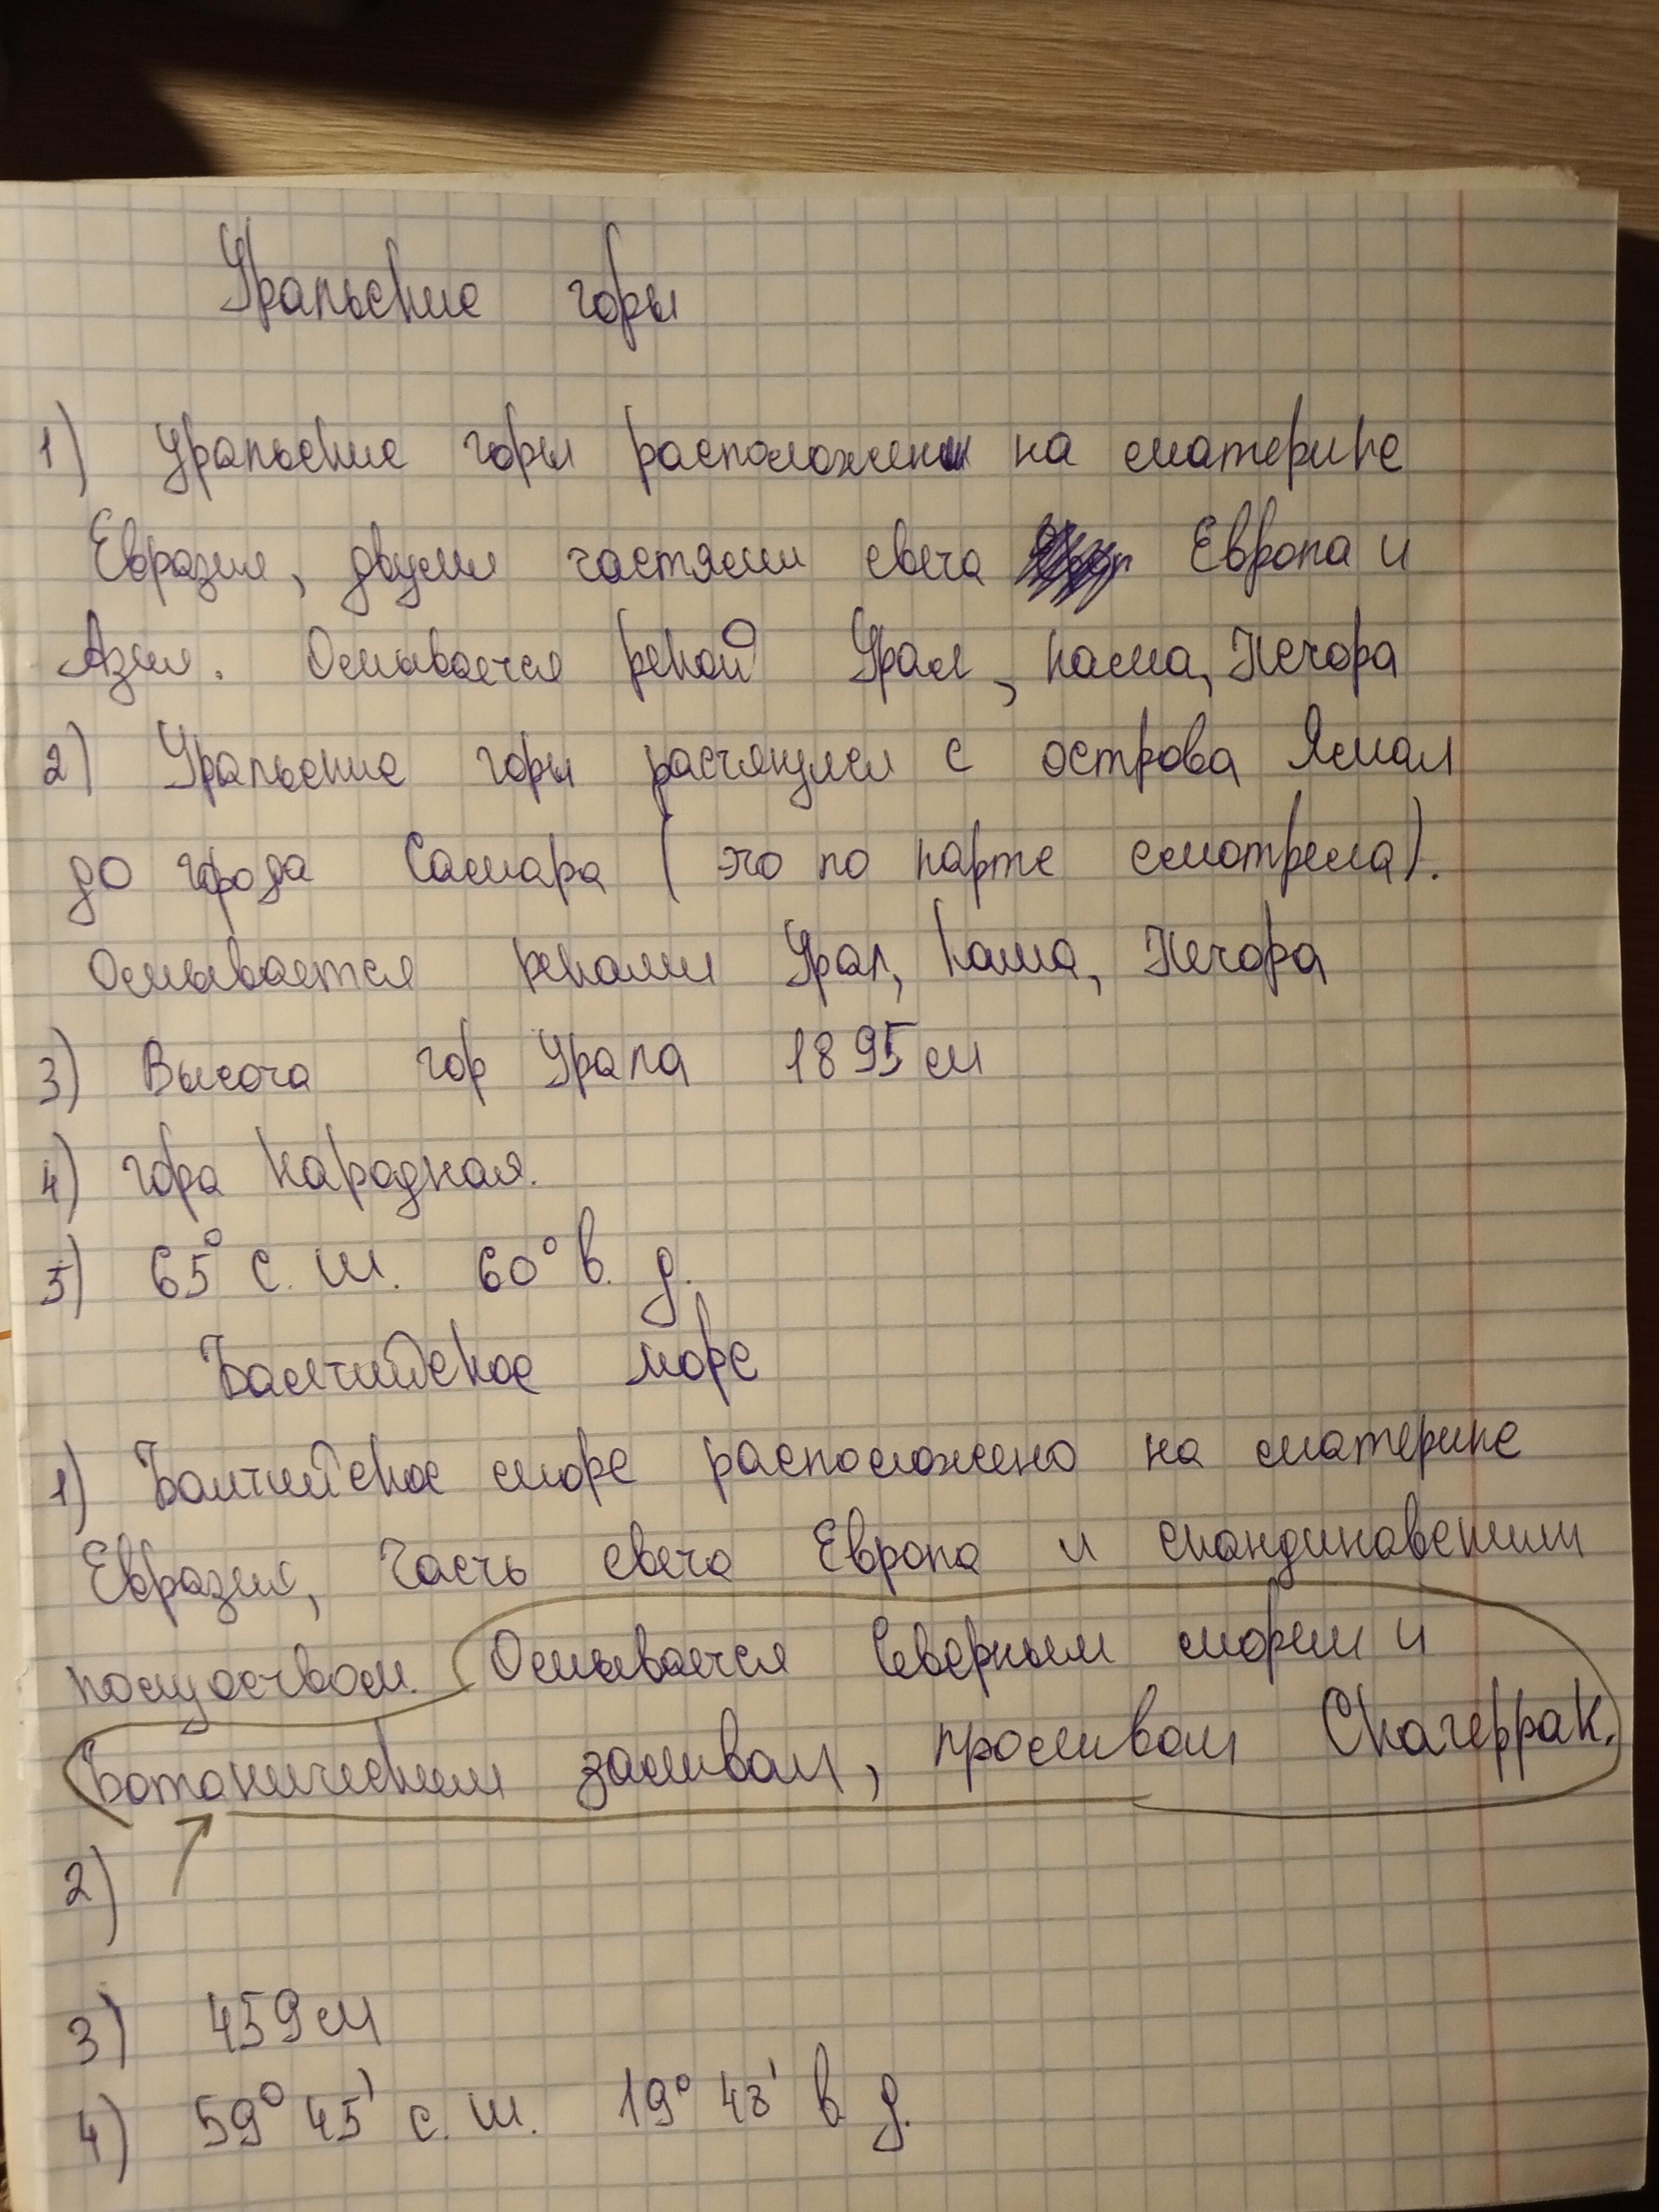 Уральские горы
1) Уральские горы расположены на материке
Евразия, двумя частями света Европа и
Азия. Омывается рекой Урал, Кама, Печора
2) Уральские горы растянулся с острова Ямал
до города Самара (это по карте смотрела).
Омывается реками Урал, Кама, Печора
3) Высота гор Урала 1895м
4) гора Народная.
5) 65° с. ш. 60° в. д.
Балтийское море
1) Балтийское море расположено на материке
Евразия, часть света Европа и скандинавским
полуоством. Омывается Северным морем и
Ботаническим заливом, проливом Скагеррак.
2)
3) 459м
4) 59° 45' с. ш. 19° 43' в д.